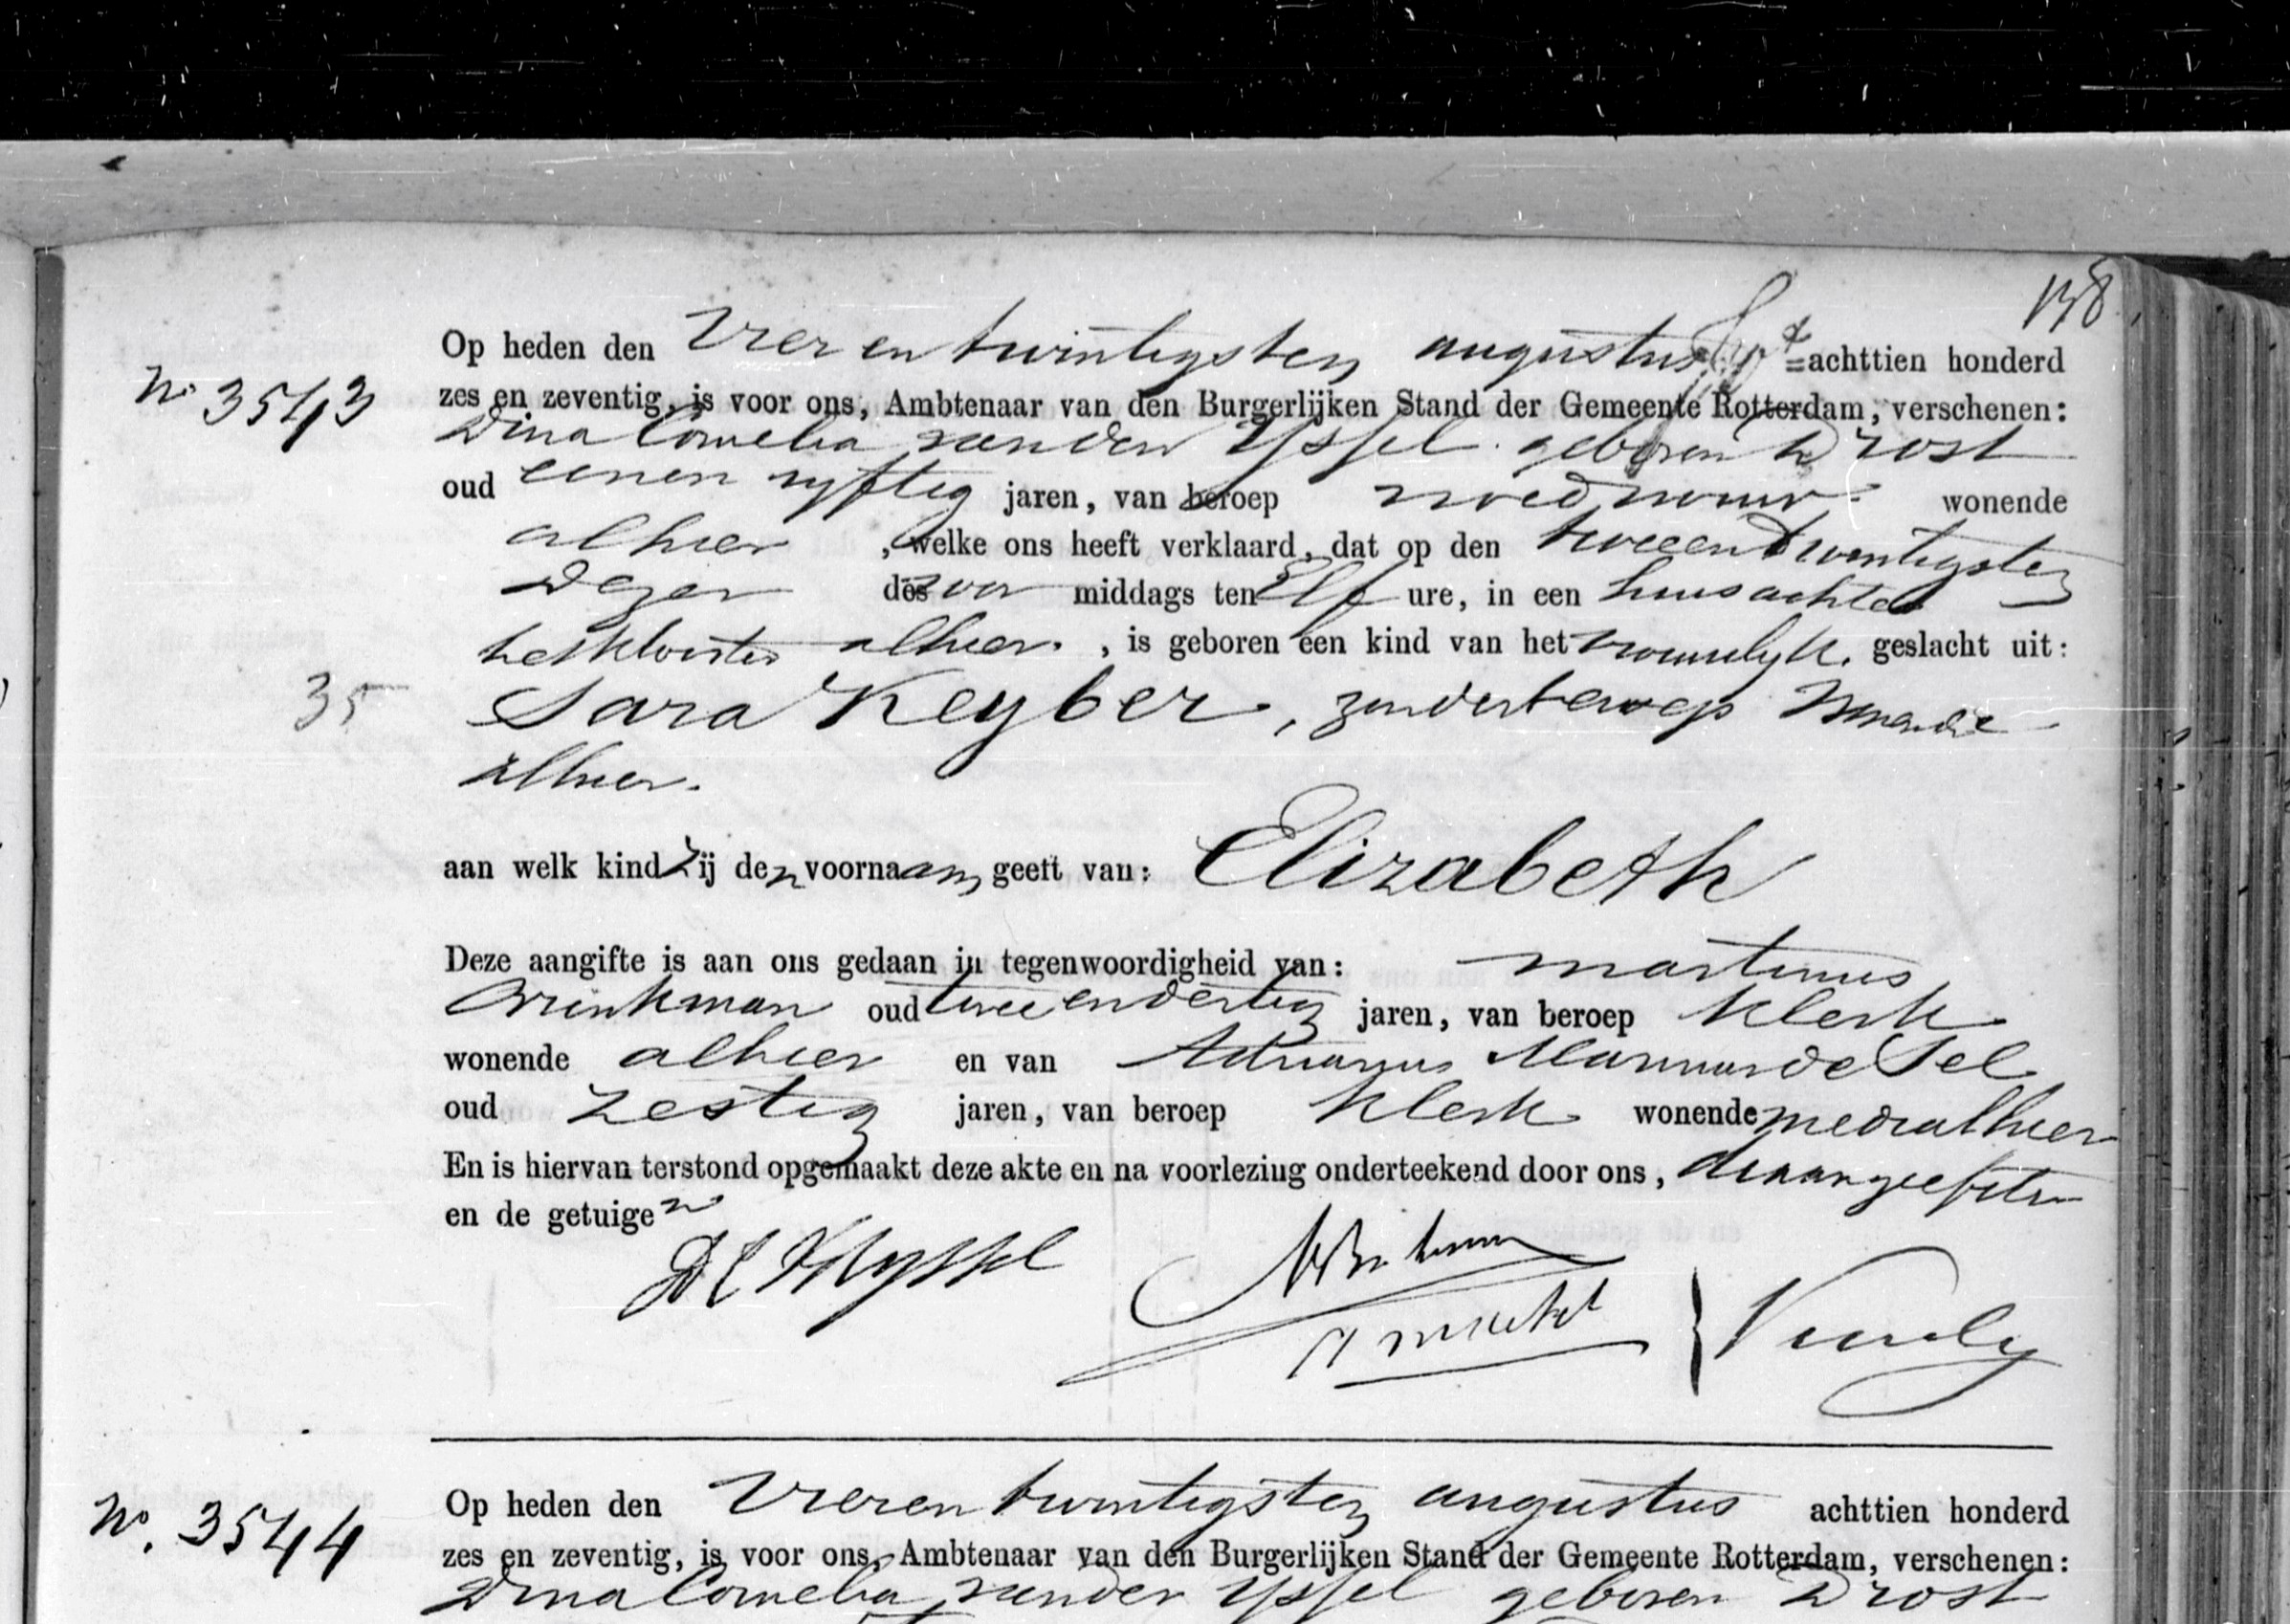 138
Op heden den Vier en twintigsten augustus achttien honderd
No 3543
zes en zeventig, is voor ons, Ambtenaar van den Burgerlijken Stand der Gemeente Rotterdam, verschenen:
Dina Cornelia van den Yssel geboren Drost
oud eenen vyftig jaren, van beroep vroedvrouw wonende
alhier , welke ons heeft verklaard, dat op den tweeentwintigsten
dezer des voor middags ten Elf ure, in een huis achter
hetklooster alhier. , is geboren een kind van het vrouwelyk. geslacht uit:
35 Sara Keyber, zonder beroep Wonende
alhier.
aan welk kind Zij den voornaam geeft van: Elizabeth
Deze aangifte is aan ons gedaan in tegenwoordigheid van: martinus
Brinkman oud twee en dertig jaren, van beroep Klerk
wonende alhier en van Adrianus Marinus de Sel
oud zestig jaren, van beroep Klerk wonende mede alhier
En is hiervan terstond opgemaakt deze akte en na voorlezing onderteekend door ons, de aangeefster
en de getuigen
No. 3544 Op heden den Vier en twintigsten augustus achttien honderd
zes en zeventig, is voor ons, Ambtenaar van den Burgerlijken Stand der Gemeente Rotterdam, verschenen:
Dina Cornelia van der Yssel geboren Drost